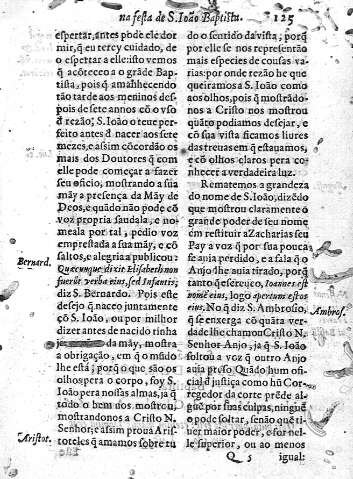 na festa de S. Ioão Baptista. 125
espertar, antes pode ele dor
mir, q̃ eu terey cuidado, de
o espertar a elle: isto vemos
q̃ acõteceo a o grãde Bap-
tista, pois q̃ amanhecendo
tão tarde aos meninos des-
pois de sete annos cõ o vso
d̃ rezão, S. Ioão o teue per-
feito antes d̃ nacer aos sete
mezes, e assim cõcordão os
mais dos Doutores q̃ com
elle pode começar a fazer
seu oficio, mostrando a sua
mãy a presença da Mãy de
Deos, e quãdo não pode cõ
voz propria saudala, e no-
meala por tal, pedio voz
emprestada a sua mãy, e cõ
saltos, e alegria a publicou:
Bernard.
Quæcunque dixit Elisabeth non
fuerũt verba eius, sed Infantis;
diz S. Bernardo. Pois este
desejo q̃ naceo juntamente
cõ S. Ioão, ou por milhor
dizer antes de nacido tinha
ja da mãy, mostra
a obrigação, em q̃ o mũdo
lhe está; porq̃ o que são os
olhos pera o corpo, foy S.
Ioão pera nossas almas, ja q̃
todo o bem nos mostrou,
mostrandonos a Cristo N.
Senhor; e assim proua Aris-
Aristot.
toteles q̃ amamos sobre tu
do o sentido da vista, porq̃
por elle se nos representão
mais especies de cousas va-
rias: por onde rezão he que
queiramos a S. Ioão como
aos olhos, pois q̃ mostrãdo-
nos a Cristo nos mostrou
quãto podiamos desejar, e
cõ sua vista ficamos liures
das treuas em q̃ estauamos,
e cõ olhos claros pera co-
nhecer a verdadeira luz.
Rematemos a grandeza
do nome de S. Ioão, dizẽdo
que mostrou claramente o
grande poder de seu nome
em restituir a Zacharias seu
Pay a voz q̃ por sua pouca
fe auia perdido, e a fala q̃ o
Anjo lhe auia tirado, porq̃
tanto q̃ se escreueo, Ioannes est
nomẽ eius, logo apertum est os
eius. No q̃ diz S. Ambrosio,
Ambros.
q̃ se enxerga cõ quãta ver-
dade lhe chamou Cristo N.
Senhor Anjo, ja q̃ S. Ioão
soltou a voz q̃ outro Anjo
auia preso. Quãdo hum ofi-
cial d̃ justiça como hũ Cor-
regedor da corte prẽde al-
guẽ por suas culpas, ninguẽ
o pode soltar, senão quẽ ti-
uer maior poder, e for nel-
le superior, ou ao menos
Q 5 igual: